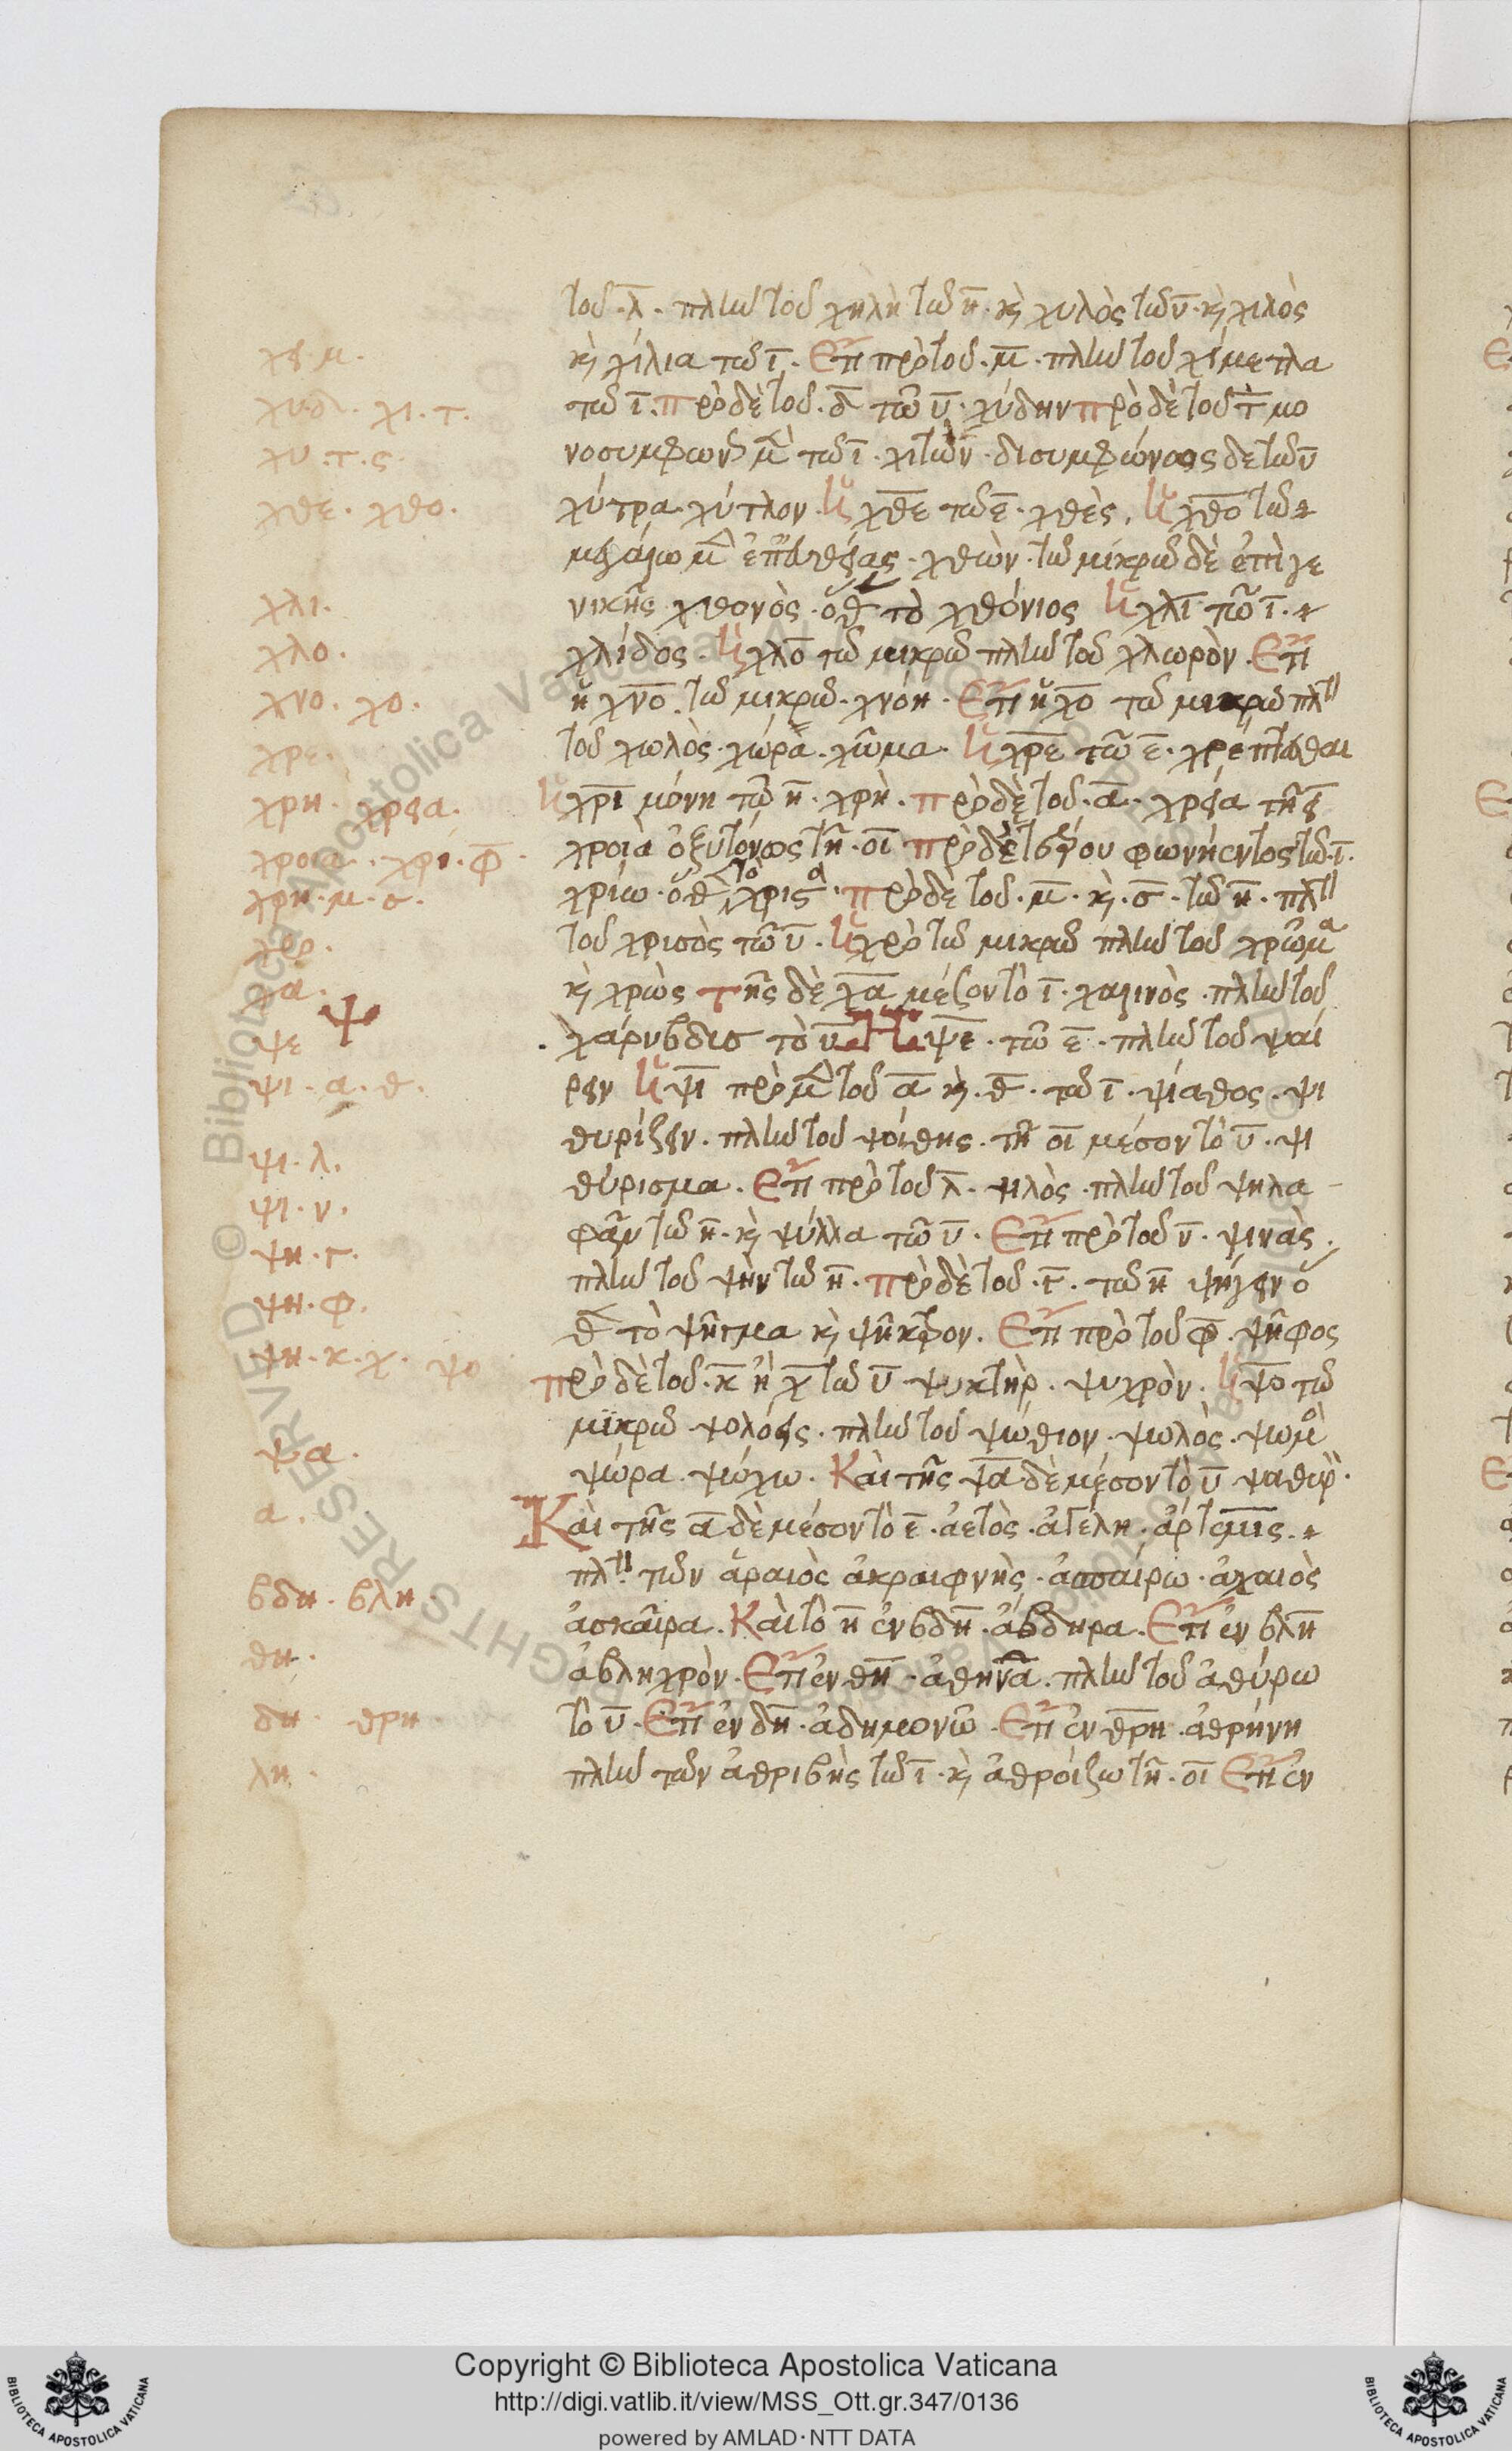 τοῦ·λ̅· πλὴν τοῦ χηλὴ τῶ η̅· κ̀ χυλὸς τῶ υ̅· κ̀ χιλὸς
κ̀ χίλια τῶ ι̅· Ἔτι πρὸ τοῦ·μ̅· πλὴν τοῦ χίμετλα
τῶ ι̅· πρὸ δὲ τοῦ·δ̅ τῶ υ̅· χύδην πρὸ δὲ τοῦ τ̅ μο
νοσυμφων μ̀ τῶ ι̅· χιτών· δισυμφώνως δε τῶ υ̅
χύτρα· χύτλον· ἡ χθ̅ε τῶ ε̅· χθὲς, ἡ χθ̅ο τῶ
μεγάλω μ̀ ἐπ' εὐθείας· χθών· τῶ μικρῶ δὲ ἐπὶ γε
νικῆς χθονὸς· ὅθ τὸ χθόνιος ἡ χλι̅ τῶ ι̅·
χλίδος· ἡ χλο̅ τῶ μικρῶ πλὴν τοῦ χλωρὸν· Ἔτι
ἡ χνο̅· τῶ μικρῶ· χνόη· Ἔτι ἡ χο̅ τῶ μικρῶ πλ
τοῦ χωλὸς· χώρα· χῶμα· ἡ χρε̅ τῶ ε̅· χρέπτεσθαι
ἡ χρι̅ μόνη τῶ η̅· χρὴ· πρὸ δὲ τοῦ·α̅· χρεία τῆ ει
χροιὰ ὀξυτόνως τῆ·οι̅ πρὸ δὲ ἑτέρου φωνήεντος τῶ·ι̅·
χρίω· ὅθ τὸ χρισ· πρὸ δὲ τοῦ·μ̅· κ̀·σ̅· τῶ η̅· πλ
τοῦ χρυσὸς τῶ υ̅· ἡ χρὸ τῶ μικρῶ πλὴν τοῦ χρῶμα
κ̀ χρὼς τῆς δὲ χα̅ μέσον τὸ ι̅· χαλινὸς· πλὴν τοῦ
χάρυβδισ τὸ υ̅ Ἡ ψε̅· τῶ ε̅· πλὴν τοῦ ψαί
ρειν ἡ ψι̅ πρὸ μ̀ τοῦ α̅ κ̀·θ̅· τῶ ι̅· ψίαθος· ψι
θυρίζειν· πλὴν τοῦ ψοίθης· τῆ οι̅ μέσον τὸ υ̅· ψι
θύρισμα· Ἔτι πρὸ τοῦ λ̅· ψιλὸς· πλὴν τοῦ ψηλα
φᾶν τῶ η̅· κ̀ ψύλλα τῶ υ̅· Ἔτι πρὸ τοῦ ν̅· ψινὰς·
πλὴν τοῦ ψὴν τῶ η̅· πρὸ δὲ τοῦ·γ̅· τῶ η̅ ψήγειν ὅ
θ τὸ ψῆγμα κ̀ ψῆκτρον· Ἔτι πρὸ τοῦ φ̅· ψῆφος
πρὸ δὲ τοῦ·κ̅ ἢ χ̅ τῶ υ̅ ψυκτὴρ· ψυχρὸν· ἡ ψο̅ τῶ
μικρῶ· ψολόεις· πλὴν τοῦ ψώθιον· ψωλὸς· ψωμὸ
ψώρα· ψώχω· Καὶ τῆς ψα̅ δὲ μέσον τὸ υ̅ ψαθυρ·
Καὶ τῆς α̅ δὲ μέσον τὸ ε̅· ἀετὸς· ἀγέλη· ἀρτεμις·
πλ τῶν ἀραιὸς ἀκραιφνὴς· ἀσπαίρω· ἀχαιὸς
ἀσκαῖρα· Καὶ τὸ η̅ ἐν βδη̅· ἄβδηρα· Ἔτι ἐν βλη̅
ἀβληχρὸν· Ἔτι ἐν θη̅· ἀθηνᾶ· πλὴν τοῦ ἀθύρω
τὸ υ̅· Ἔτι ἐν δη̅· ἀδημονῶ· Ἔτι ἐν θρη· ἀθρήνη
πλὴν τῶν ἀθριβὴς τῶ ι̅· κ̀ ἀθροίζω τῆ·οι̅ Ἔτι ἐν
χει·μ·
χυ·δ· χι·τ·
χυ·τ·ς·
χθε· χθο·
χλι·
χλο·
χνο· χο·
χρε·
χρη· χρεια·
χροια· χρι·φ̅·
χρη·μ·σ·
χρο·
χα·
Ψ
ψε
ψι·α·θ·
ψι·λ·
ψι·ν·
ψη·γ·
ψη·φ·
ψη·κ·χ· ψο
ψα·
α·
βδη· βλη·
θη·
δη· θρη
λη·
Copyright © Biblioteca Apostolica Vaticana
http://digi.vatlib.it/view/MSS_Ott.gr.347/0136
powered by AMLAD·NTT DATA
BIBLIOTECA APOSTOLICA VATICANA
BIBLIOTECA APOSTOLICA VATICANA